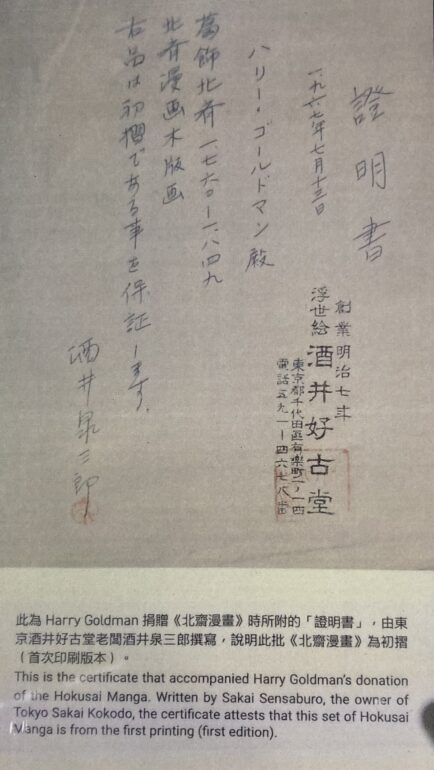 證明書
一九六七年七月十三日
ハリー・ゴールドマン殿
葛飾北斎一七六〇ー一八四九
北斉漫画木版画
右品は初摺である事を保証します。
酒井泉三郎
創業明治七年
浮世絵 酒井好古堂
東京都千代田區有楽町一ノ一四
電話五九一ー四六七八番
此為 Harry Goldman 捐贈《北齋漫畫》時所附的「證明書」，由東
京酒井好古堂老闆酒井泉三郎撰寫，說明此批《北齋漫畫》為初摺
（首次印刷版本）。
This is the certificate that accompanied Harry Goldman's donation
of the Hokusai Manga. Written by Sakai Sensaburo, the owner of
Tokyo Sakai Kokodo, the certificate attests that this set of Hokusai
Manga is from the first printing (first edition).